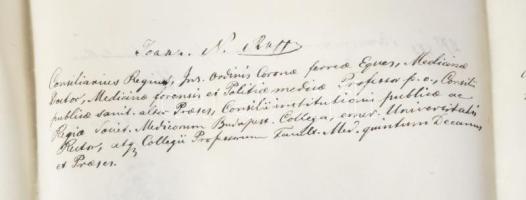 Joan. N. Rupp
Consiliarius Regius, Ins. Ordinis Coronæ ferreæ Eques, Medicinæ
Doctor, Medicinæ forensis et Politiæ medicæ Professor p. o., Consilii
publicæ sanit. alter Præses, Consilii institutionis publicæ ac
Regiæ societ. Medicorum Budapest. Collega, emer. Universitatis
Rector, atq Collegii Professorum Facult. Med. quintum Decanus
et Præses.